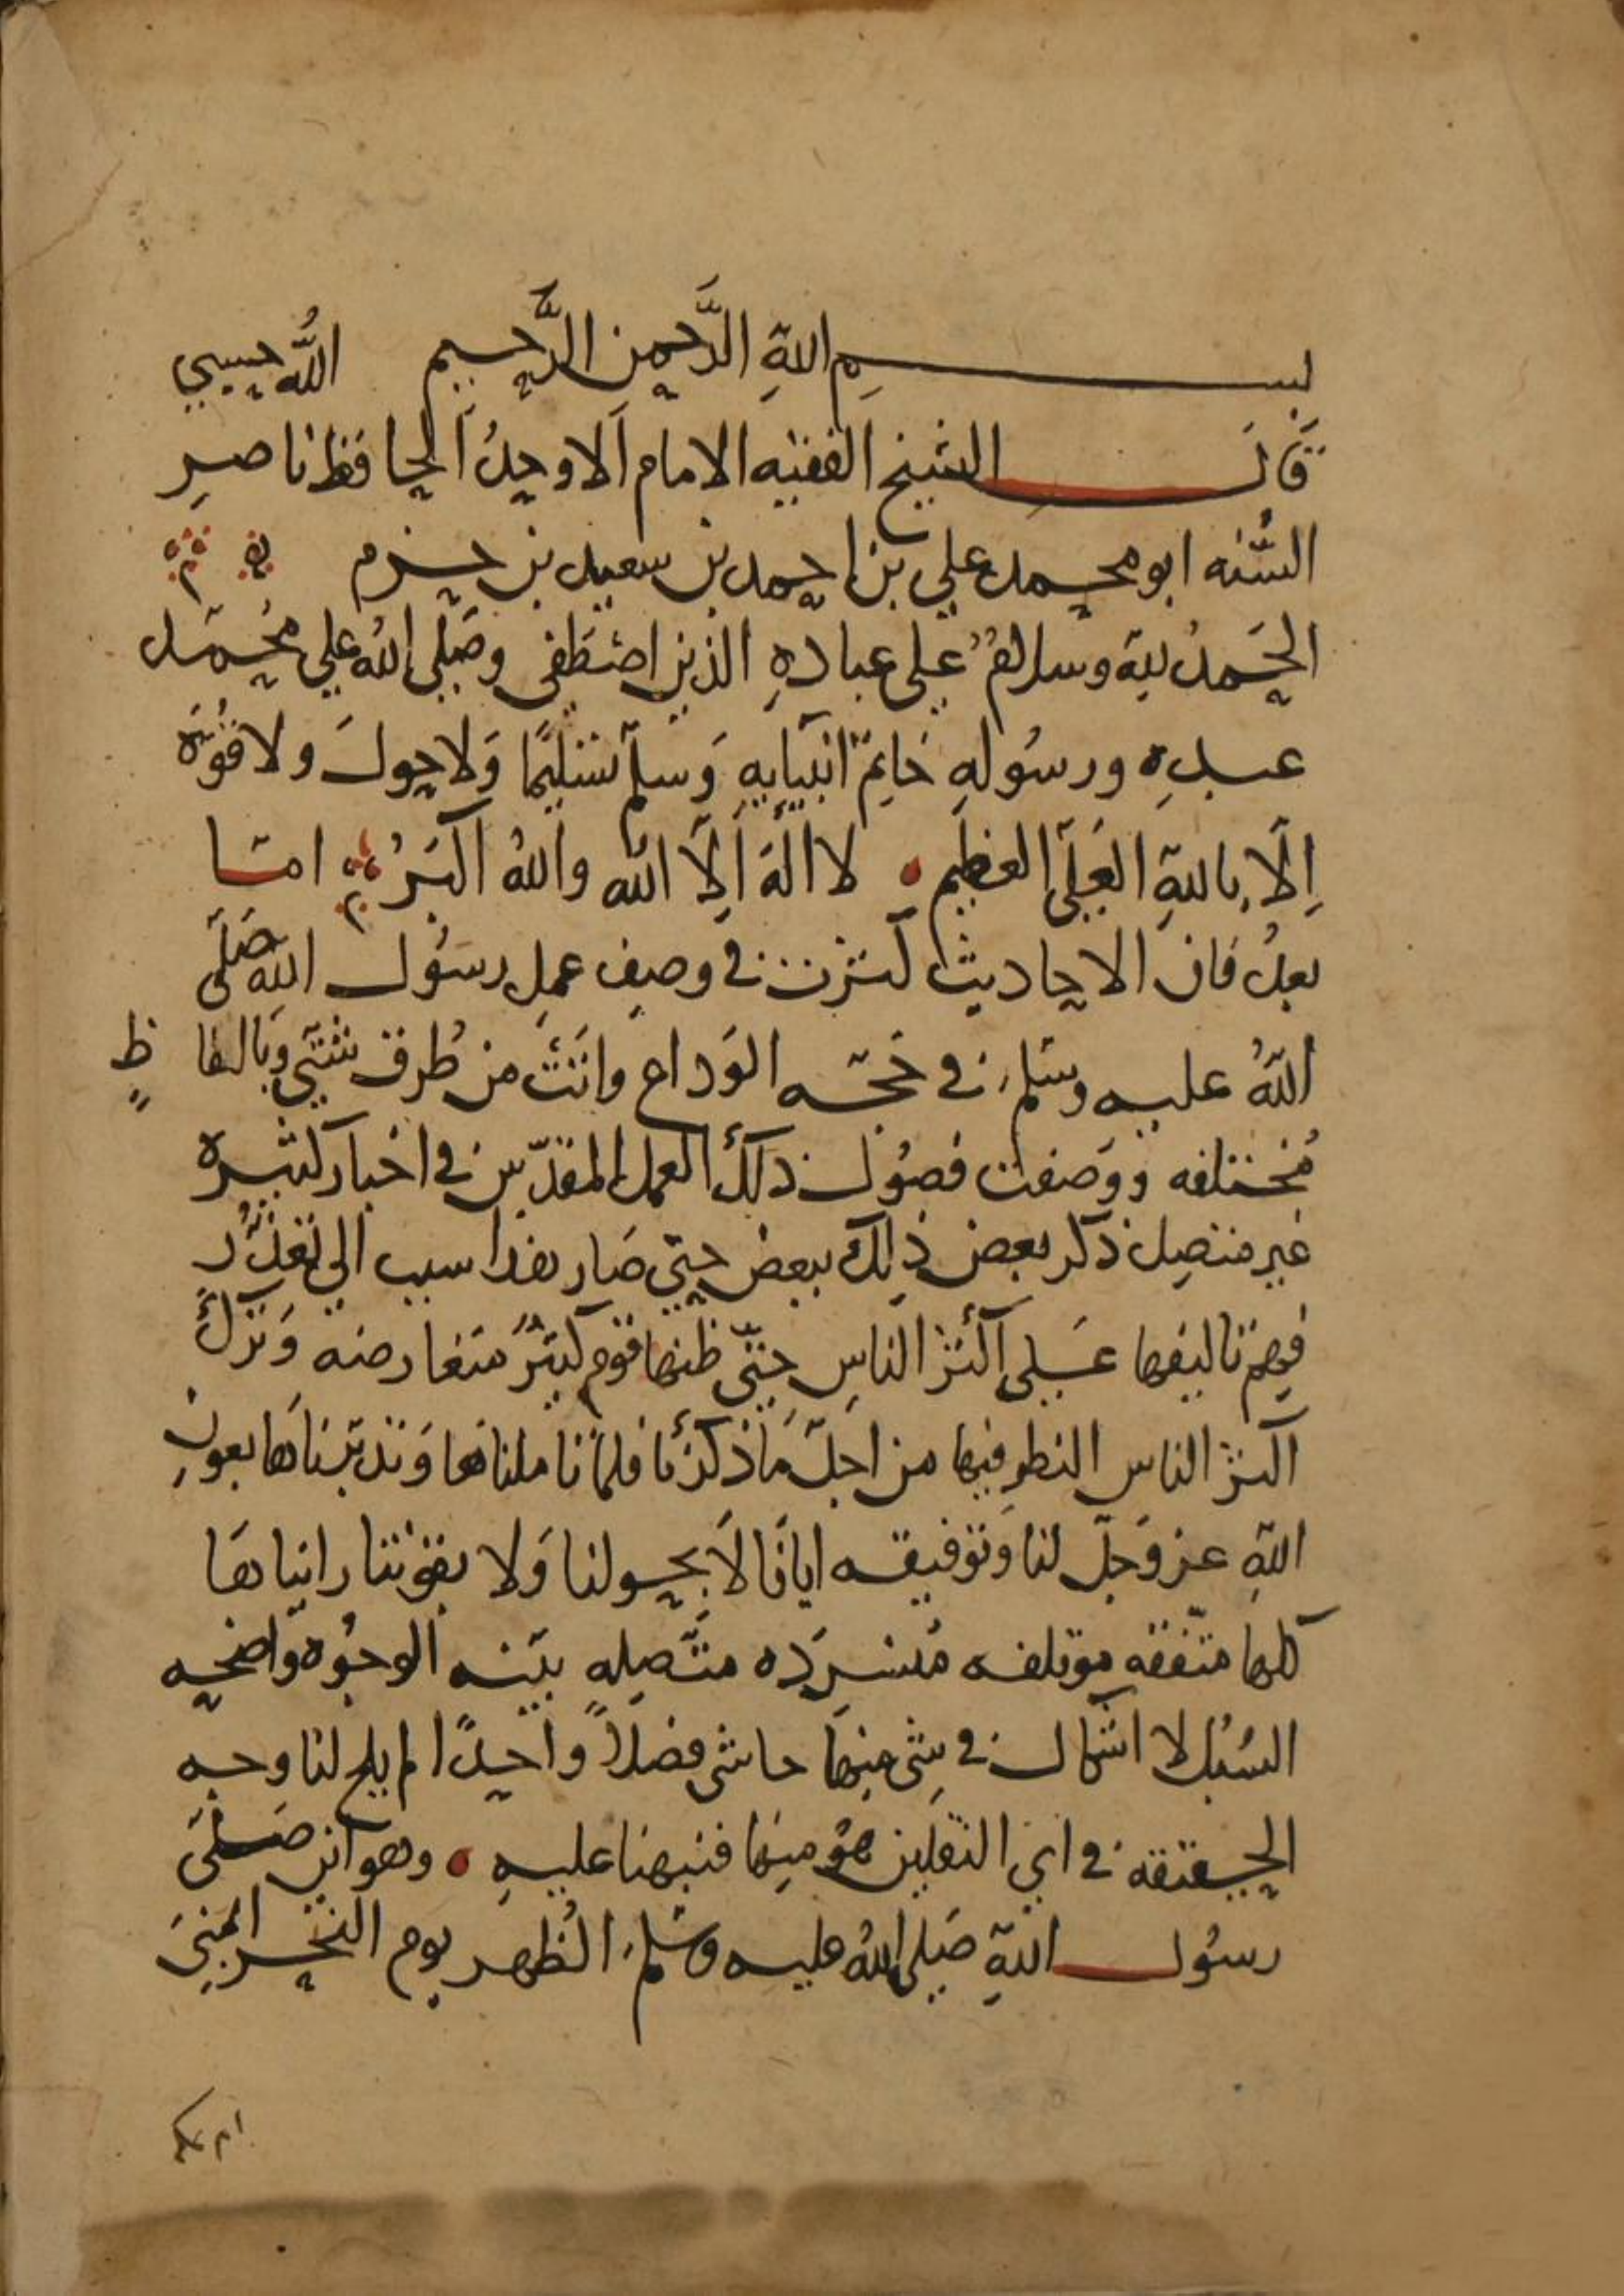 بسم اللهِ الرَّحمن الرَّحيم الله حسبي
قال الشيخ الفقيه الامام الاوحدُ الحافظ ناصر
السُّنه ابو محمد علي بن احمد بن سعيد بن حزم
الحَمدُ للهِ وسلامٌ على عبادهِ الذين اصطَفى وصَلى اللهُ على مُحمَّد
عبدِه ورسُولهِ خاتم انبيايهِ وَسلم تسليمًا وَلا حولَ ولا قُوَّة
اِلّا باللهِ العَلّى العظيم لا الهَ اِلّا الله واللهُ اكبَرُ امّا
بعدُ فان الاحاديث كثرت في وصفِ عملِ رسُول اللهِ صَلى
اللهُ عليه وسَلم في حَجّه الوَداع واتَتْ من طُرق شتّى وبالفاظٍ
مُختلفه ووَصفت فصُول ذلكَ العمل المقدّس في اخبار كثيره
غير متصِل ذكر بعض ذلك ببعض حتّى صَار هذا سبب الى تعذّرُ
فهم تاليفها عَلى اكثر الناسِ حتّى ظنها قوم كثيرٌ متعارضه وَتركَ
اكثر الناس النظر فيها من اجل مَا ذكرْنا فلمّا تاملناها وَتدبّرناها بعونِ
اللهِ عز وَجلّ لنا وَتوفيقه ايانا لَا بحولنا وَلا بقوّتنا رايناهَا
كلها متّفقه موتلفه مُنسرَده متّصله بيّنه الوجُوه واضحه
السُبُل لا اشكال في شى منها حاشى فضلاً واحدًا لم يلح لنا وجه
الحقيقه في اي النقلين هُو منها فنبهنا عليهِ وهو اين صَلى
رسُول اللهِ صَلى اللهُ عليه وسَلم الظُهر يوم النحر ابمنى
ام بمكه